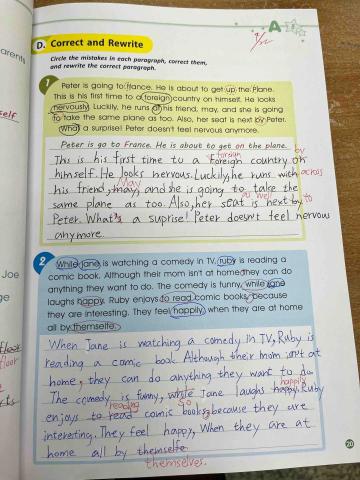 arents
A
D. Correct and Rewrite
Circle the mistakes in each paragraph, correct them,
and rewrite the correct paragraph.
1
Peter is going to france. He is about to get up the plane.
This is his first time to a foreign country on himself. He looks
nervously. Luckily, he runs at his friend, may, and she is going
to take the same plane as too. Also, her seat is next by Peter.
What a surprise! Peter doesn't feel nervous anymore.
Peter is go to France. He is about to get on the plane.
foreign by
This is his first time to a Foreign country on
himself. He looks nervous. Luckily, he runs with across
May
his friend, may, and she is going to take the
as well
same plane as too. Also, her seat is next by to
Peter. What's a suprise! Peter doesn't feel nervous
anymore.
self
2
While jane is watching a comedy in TV, ruby is reading a
comic book. Although their mom isn't at home, they can do
anything they want to do. The comedy is funny, while jane
laughs happy. Ruby enjoys to read comic books, because
they are interesting. They feel happily when they are at home
all by themselfe.
Joe
ge
When Jane is watching a comedy in TV, Ruby is
reading a comic book. Although their mom isn't at
home, they can do anything they want to do.
happily
The comedy is funny, write Jane laughs happy. Ruby
reading so
enjoys to read comic books, because they are
interesting. They feel happy, When they are at
home all by themselfe
themselves.
floor
floor
rts
20